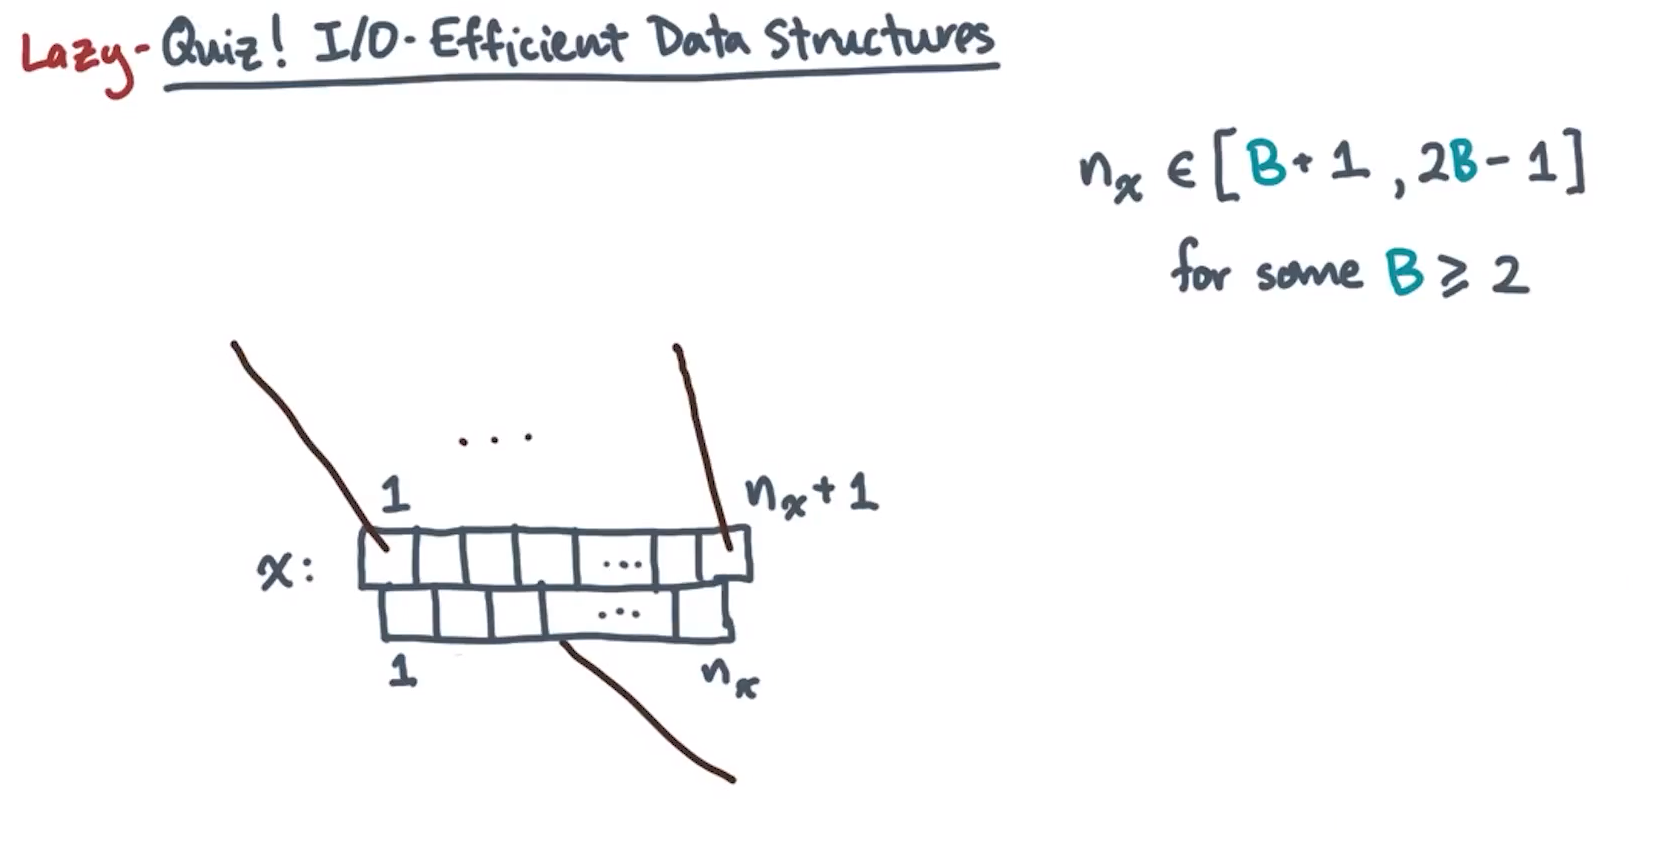 Lazy-Quiz! I/O-Efficient Data Structures
nₓ ∈ [B+1, 2B-1]
for some B ≥ 2
...
1 nₓ+1
x: ...
...
1 nₓ